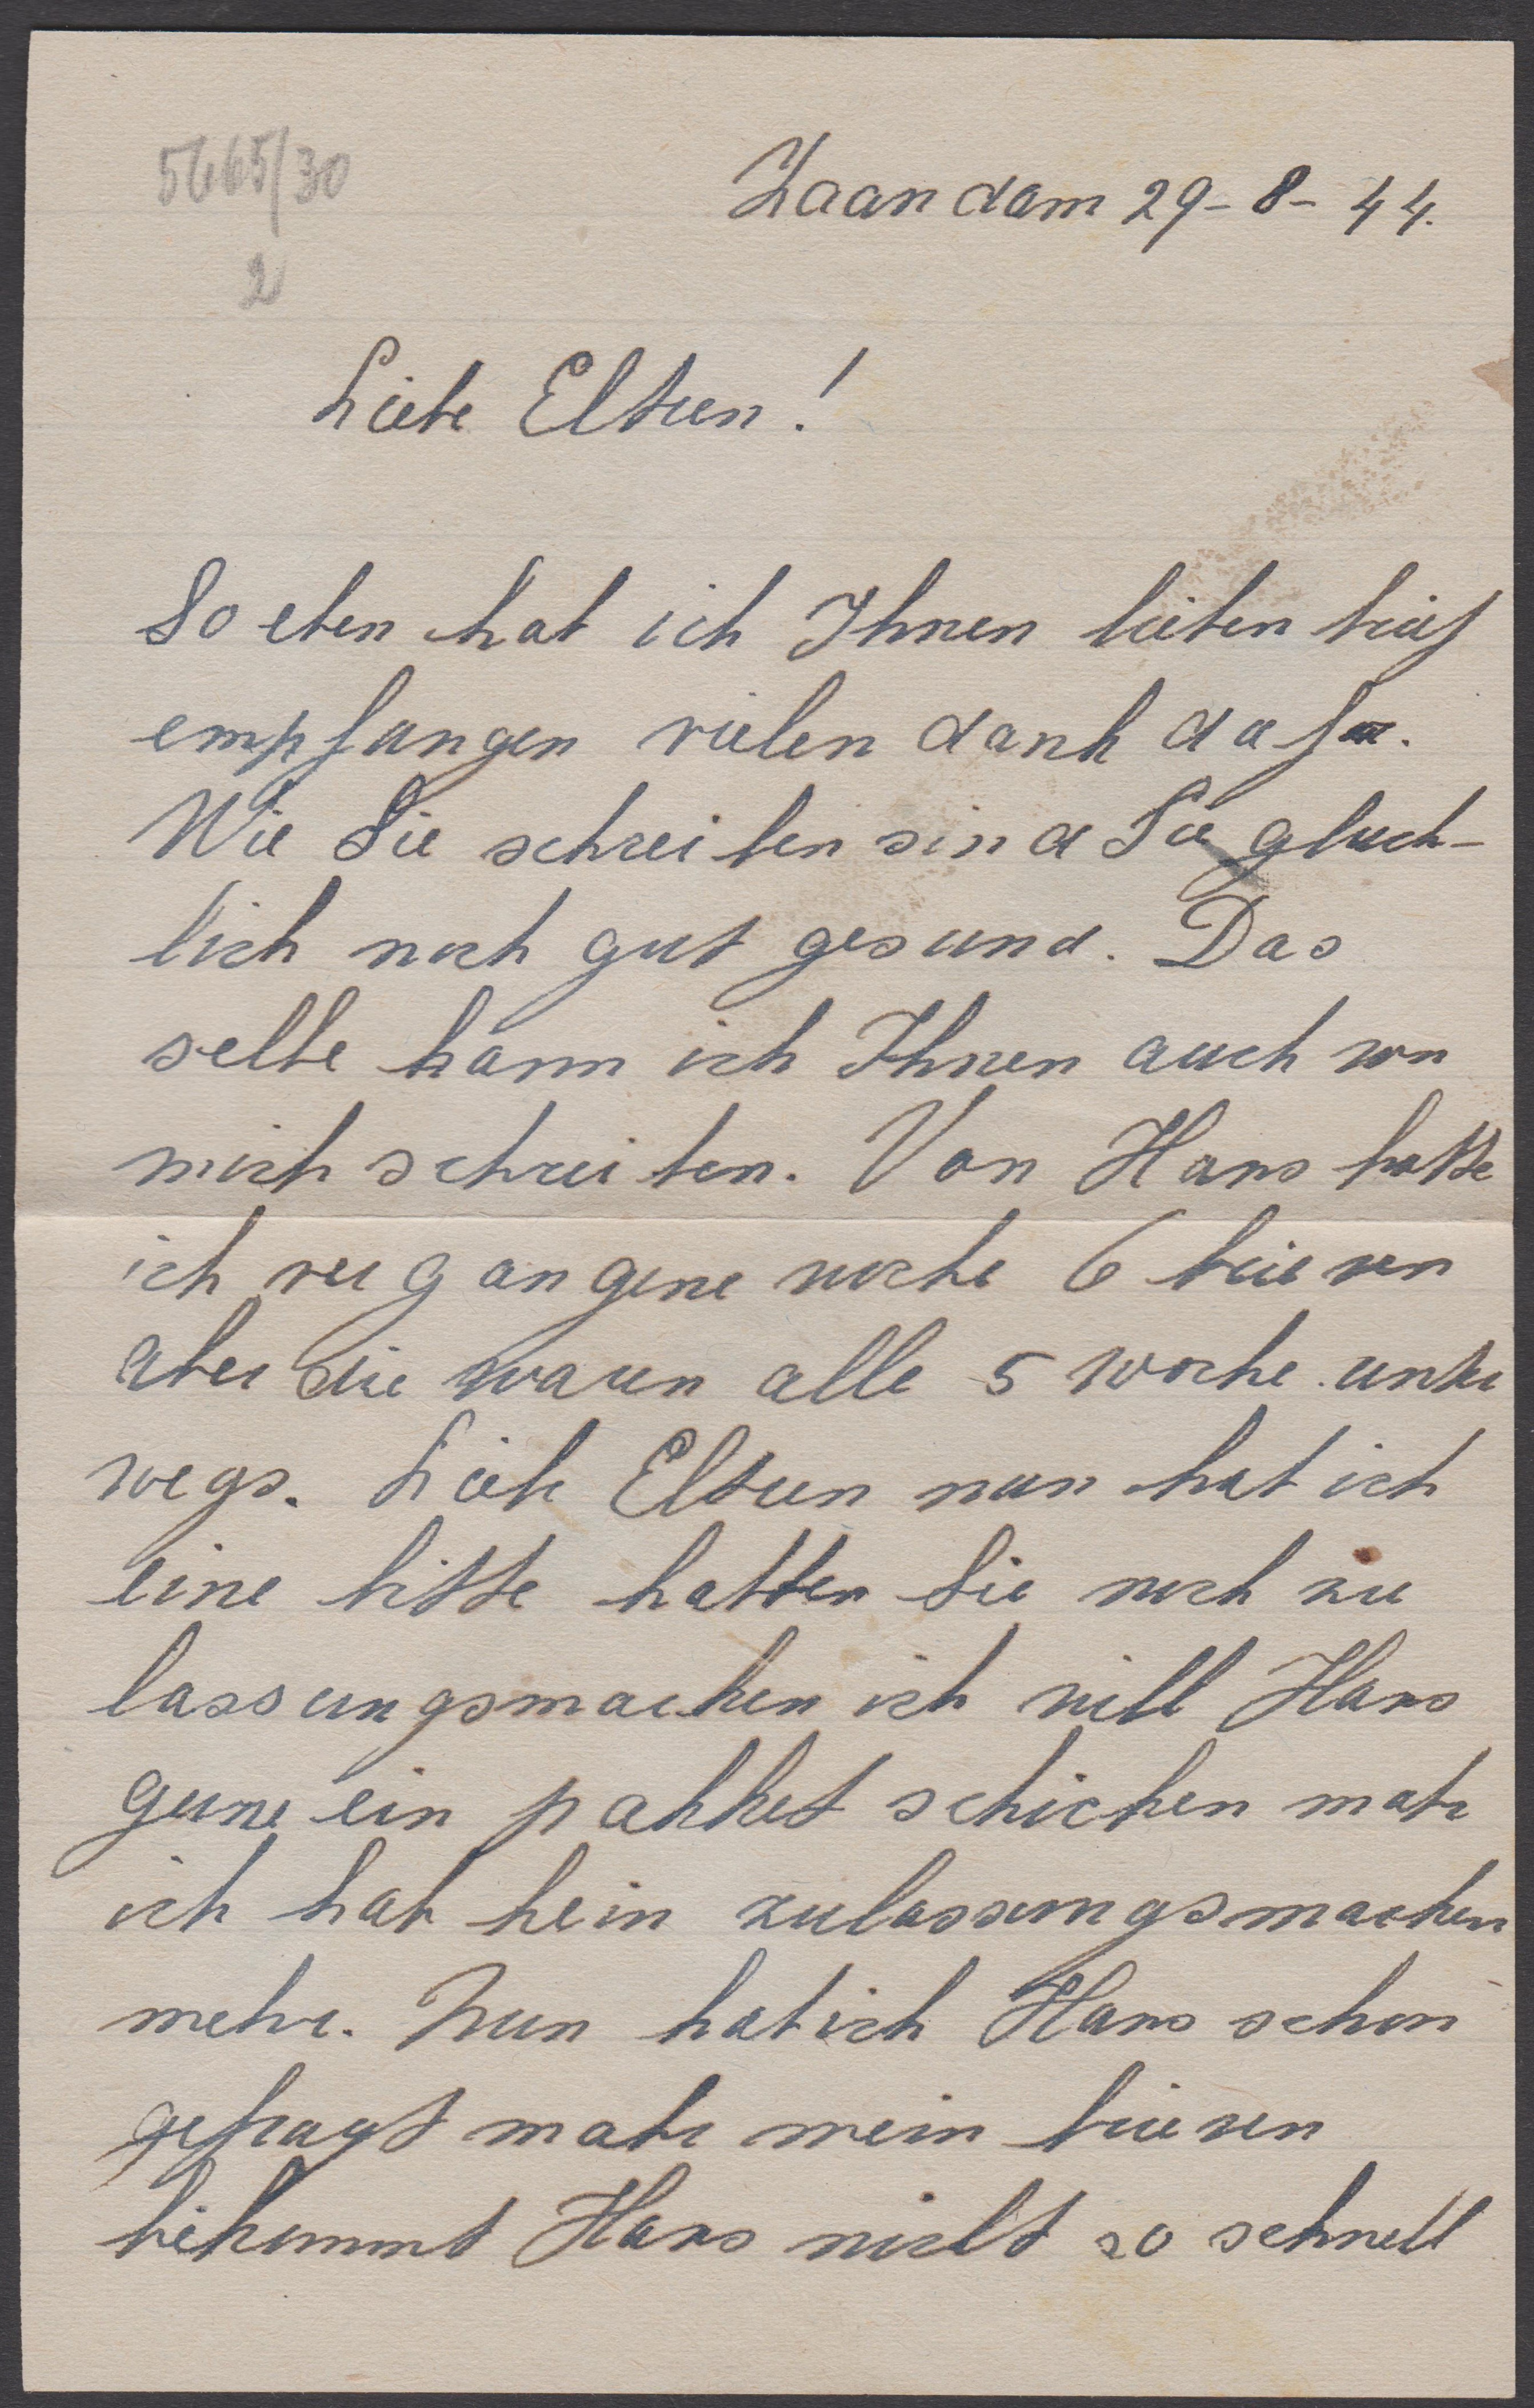 5665/30
2
Zaandam 29-8-44.
Liebe Eltren!
So eben hab ich Ihnen lieben brief
empfangen vielen dank dafur.
Wie Sie schreiben sind Sie gluck-
lich noch gut gesund. Das
selbe kann ich Ihnen auch von
mich schreiben. Von Hans hatte
ich vergangene woche 6 brieven
aber die waren alle 5 woche unter
wegs. Liebe Eltren nun hab ich
eine bitte hatten Sie noch zu
lassungsmarken ich will Hans
gerne ein pakket schicken mahr
ich hab kein zulassungsmarken
mehr. Nun hab ich Hans schon
gefragt mahr mein brieven
bekommt Hans nicht so schnell